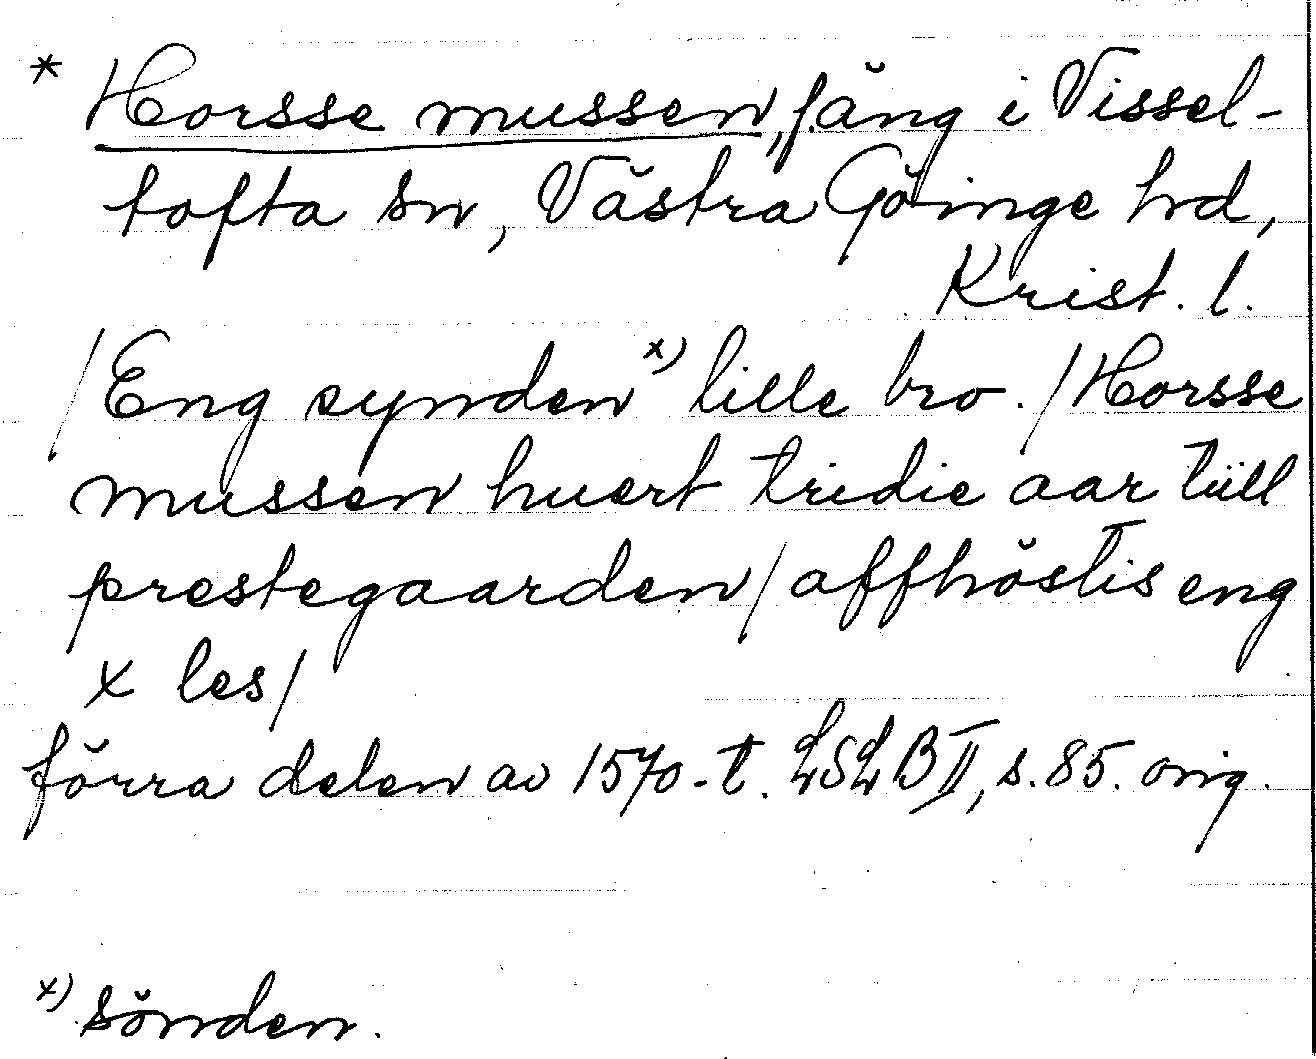 * Horsse mussen, fäng i Vissel-
tofta sn, Västra Göinge hd,
Krist. l.
/Eng synden x) lille bro. /Horsse
mussen huert tredie aar till
prestegaarden/ affhöstis eng
x les/
förra delen av 1570-t. LSLB II, s. 85. orig.
x) sönden.